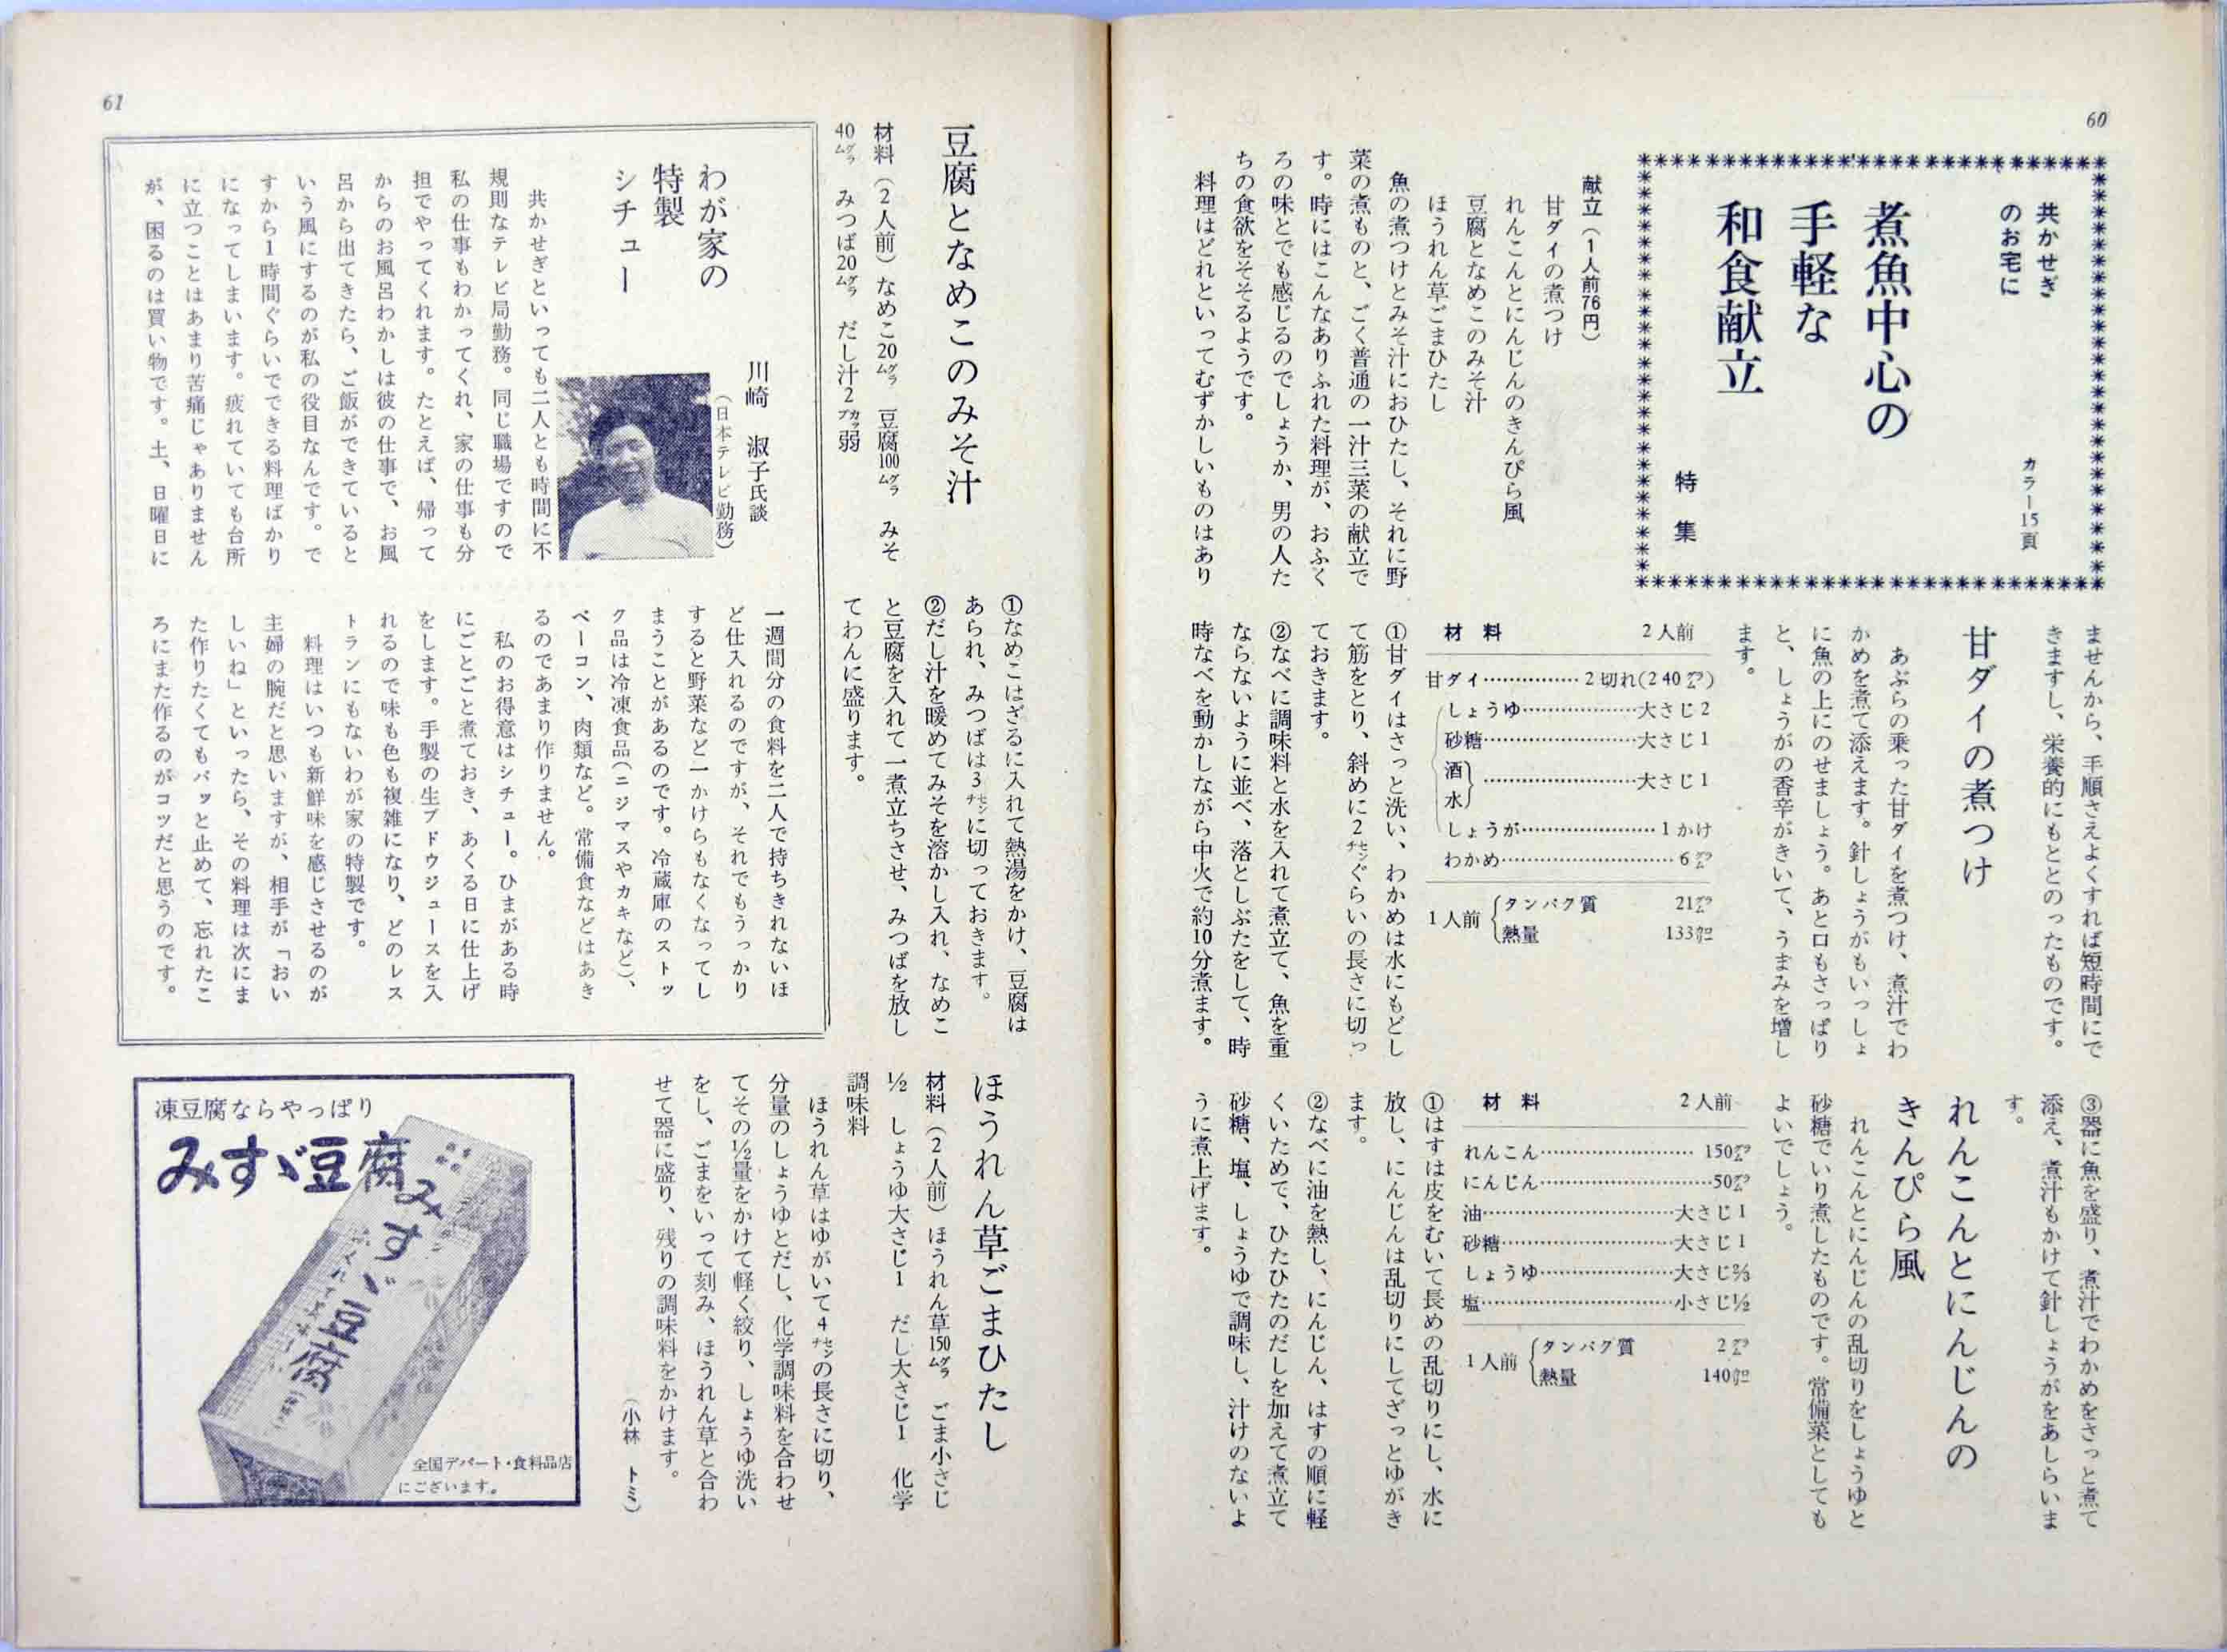 60
共かせぎ
のお宅に
カラー15頁
煮魚中心の
手軽な
和食献立
特集
献立（1人前76円）
甘ダイの煮つけ
れんこんとにんじんのきんぴら風
豆腐となめこのみそ汁
ほうれん草ごまひたし
魚の煮つけとみそ汁におひたし、それに野
菜の煮ものと、ごく普通の一汁三菜の献立で
す。時にはこんなありふれた料理が、おふく
ろの味とでも感じるのでしょうか、男の人た
ちの食欲をそそるようです。
料理はどれといってむずかしいものはあり
ませんから、手順さえよくすれば短時間にで
きますし、栄養的にもととのったものです。
甘ダイの煮つけ
あぶらの乗った甘ダイを煮つけ、煮汁でわ
かめを煮て添えます。針しょうがもいっしょ
に魚の上にのせましょう。あと口もさっぱり
と、しょうがの香辛がきいて、うまみを増し
ます。
材料 2人前
甘ダイ……………2切れ(240グラム)
しょうゆ………………大さじ2
砂糖……………………大さじ1
酒
水 ……………………大さじ1
しょうが…………………1かけ
わかめ………………………6グラム
1人前 タンパク質 21グラム
熱量 133カロリー
①甘ダイはさっと洗い、わかめは水にもどし
て筋をとり、斜めに2センチぐらいの長さに切っ
ておきます。
②なべに調味料と水を入れて煮立て、魚を重
ならないように並べ、落としぶたをして、時
時なべを動かしながら中火で約10分煮ます。
③器に魚を盛り、煮汁でわかめをさっと煮て
添え、煮汁もかけて針しょうがをあしらいま
す。
れんこんとにんじんの
きんぴら風
れんこんとにんじんの乱切りをしょうゆと
砂糖でいり煮したものです。常備菜としても
よいでしょう。
材料 2人前
れんこん……………………150グラム
にんじん………………………50グラム
油…………………………大さじ1
砂糖………………………大さじ1
しょうゆ…………………大さじ⅔
塩…………………………小さじ½
1人前 タンパク質 2グラム
熱量 140カロリー
①はすは皮をむいて長めの乱切りにし、水に
放し、にんじんは乱切りにしてざっとゆがき
ます。
②なべに油を熱し、にんじん、はすの順に軽
くいためて、ひたひたのだしを加えて煮立て
砂糖、塩、しょうゆで調味し、汁けのないよ
うに煮上げます。
61
豆腐となめこのみそ汁
材料（2人前）なめこ20グラム 豆腐100グラム みそ
40グラム みつば20グラム だし汁2カップ弱
①なめこはざるに入れて熱湯をかけ、豆腐は
あられ、みつばは3センチに切っておきます。
②だし汁を暖めてみそを溶かし入れ、なめこ
と豆腐を入れて一煮立ちさせ、みつばを放し
てわんに盛ります。
ほうれん草ごまひたし
材料（2人前）ほうれん草150グラム ごま小さじ
½ しょうゆ大さじ1 だし大さじ1 化学
調味料
ほうれん草はゆがいて4センチの長さに切り、
分量のしょうゆとだし、化学調味料を合わせ
てその½量をかけて軽く絞り、しょうゆ洗い
をし、ごまをいって刻み、ほうれん草と合わ
せて器に盛り、残りの調味料をかけます。
（小林 トミ）
わが家の
特製
シチュー
川崎 淑子氏談
（日本テレビ勤務）
共かせぎといっても二人とも時間に不
規則なテレビ局勤務。同じ職場ですので
私の仕事もわかってくれ、家の仕事も分
担でやってくれます。たとえば、帰って
からのお風呂わかしは彼の仕事で、お風
呂から出てきたら、ご飯ができていると
いう風にするのが私の役目なんです。で
すから1時間ぐらいでできる料理ばかり
になってしまいます。疲れていても台所
に立つことはあまり苦痛じゃありません
が、困るのは買い物です。土、日曜日に
一週間分の食料を二人で持ちきれないほ
ど仕入れるのですが、それでもうっかり
すると野菜など一かけらもなくなってし
まうことがあるのです。冷蔵庫のストッ
ク品は冷凍食品（ニジマスやカキなど）、
ベーコン、肉類など。常備食などはあき
るのであまり作りません。
私のお得意はシチュー。ひまがある時
にごとごと煮ておき、あくる日に仕上げ
をします。手製の生ブドウジュースを入
れるので味も色も複雑になり、どのレス
トランにもないわが家の特製です。
料理はいつも新鮮味を感じさせるのが
主婦の腕だと思いますが、相手が「おい
しいね」といったら、その料理は次にま
た作りたくてもパッと止めて、忘れたこ
ろにまた作るのがコツだと思うのです。
凍豆腐ならやっぱり
みすゞ豆腐
みすゞ豆腐
全国デパート・食料品店
にございます。